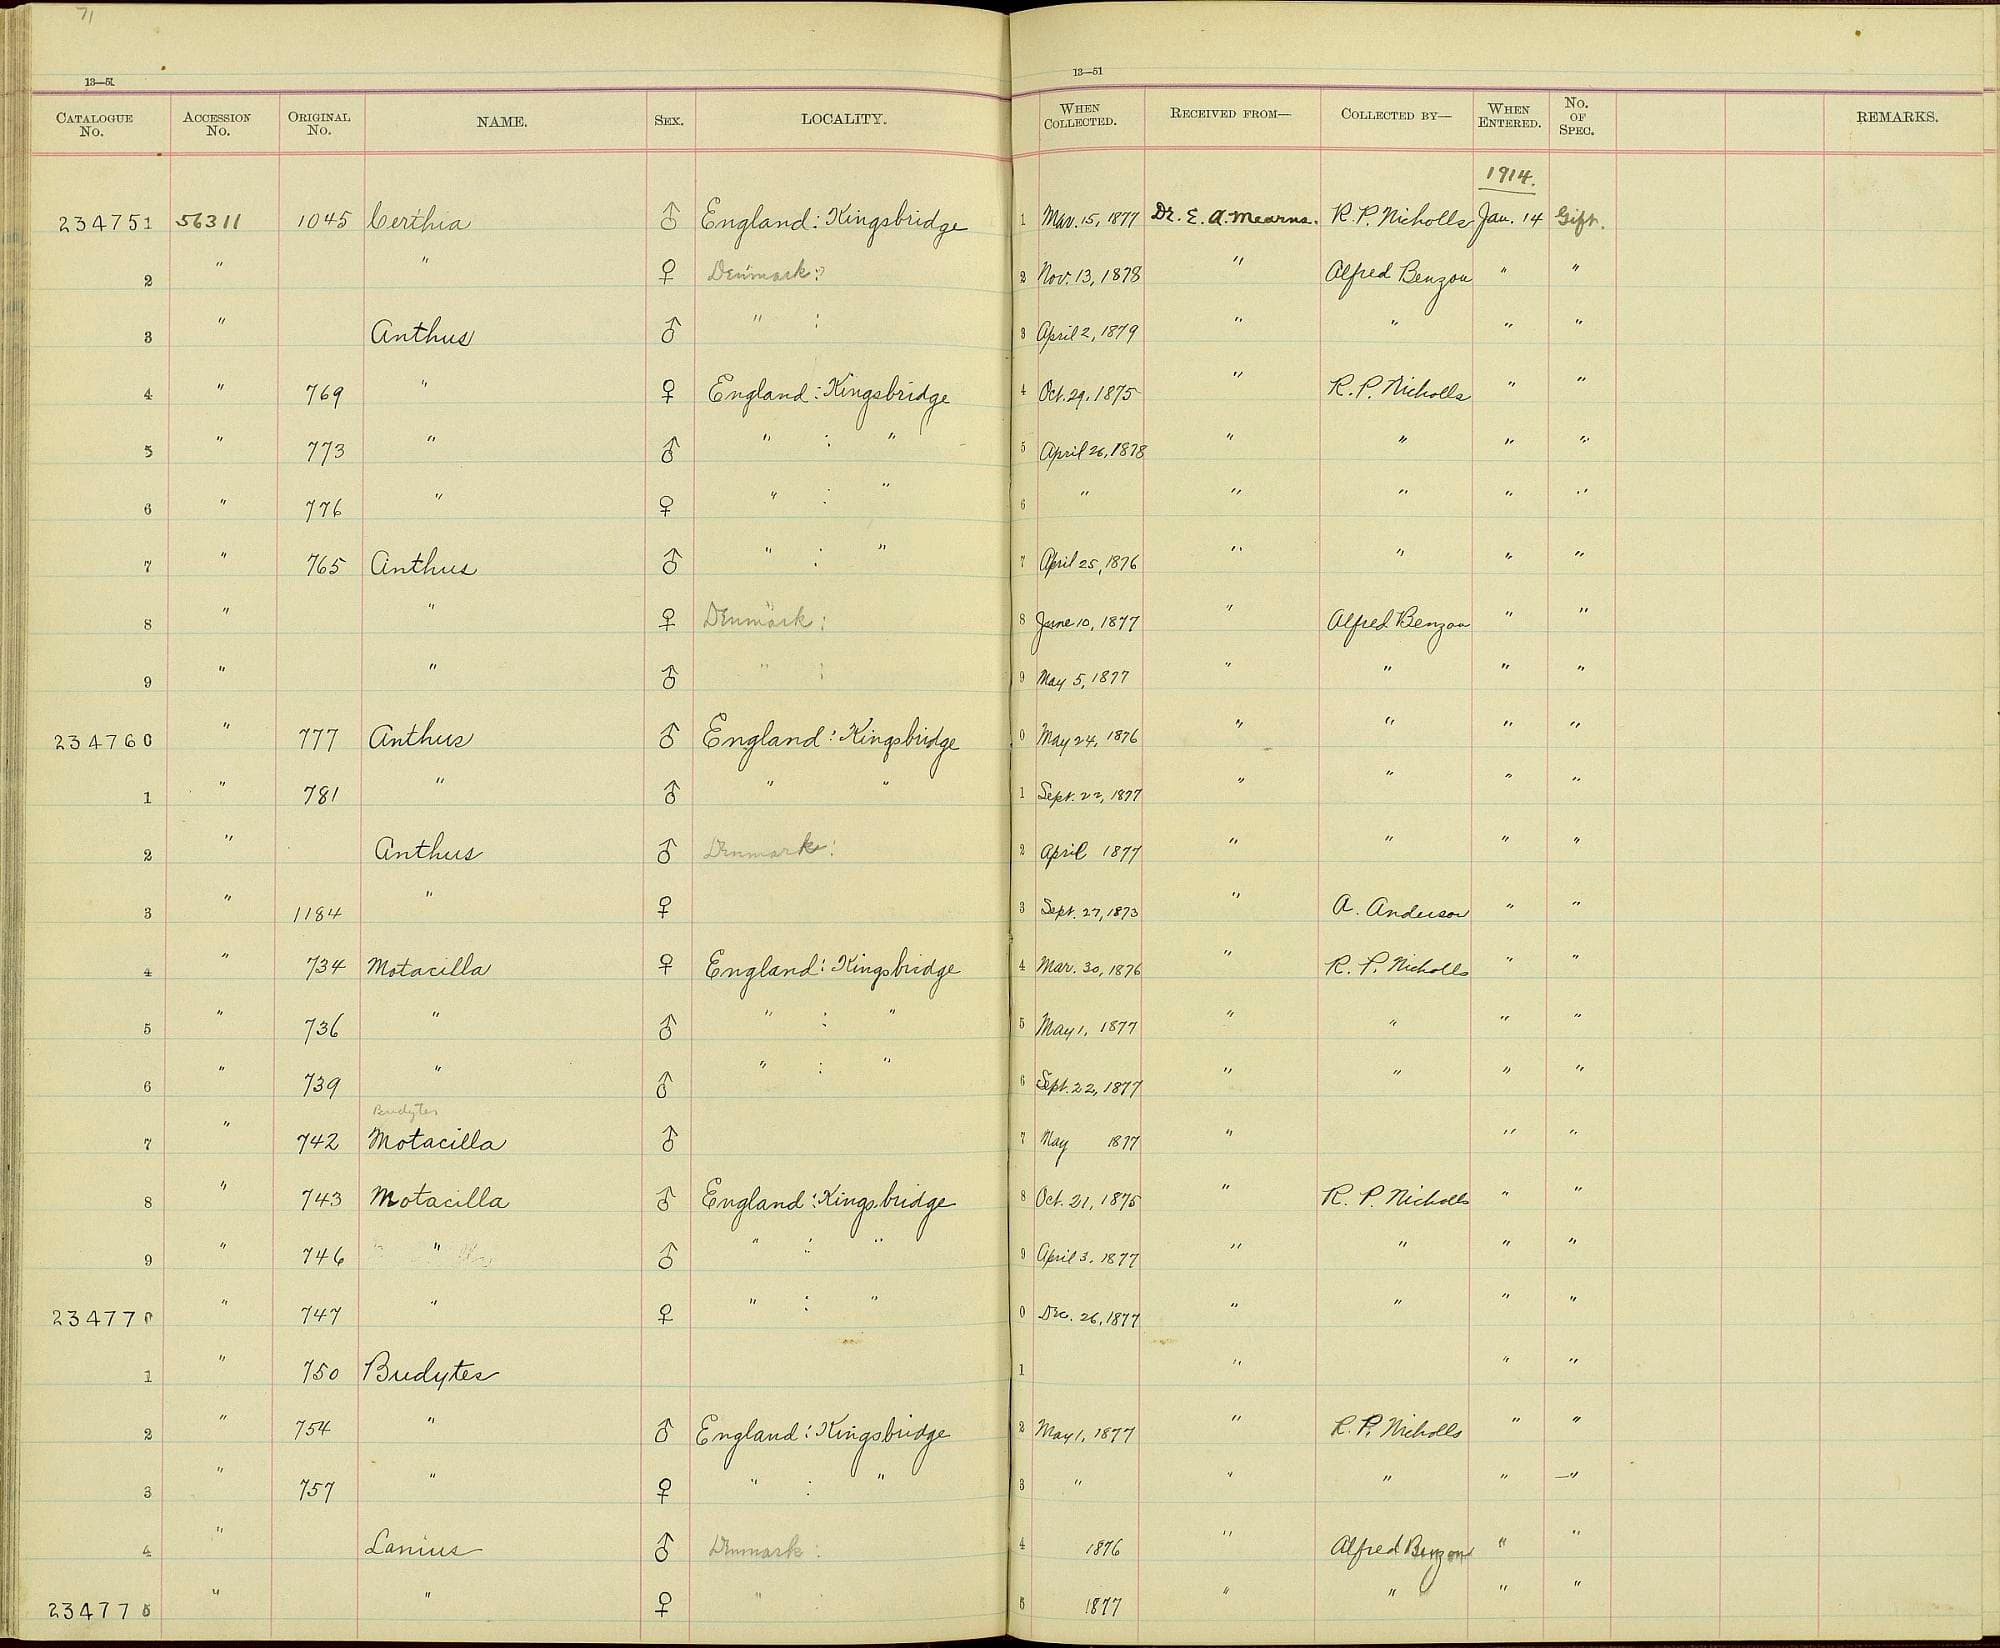 71
13—51
13—51
Catalogue No. Accession No. Original No. NAME. Sex. LOCALITY. When Collected. Received from— Collected by— When Entered. No. of Spec. REMARKS.
1914.
234751 56311 1045 Certhia ♂ England: Kingsbridge 1 Mar. 15, 1877 Dr. E. A. Mearns. R. P. Nicholls Jan. 14 Gift.
2 " " ♀ Denmark: 2 Nov. 13, 1878 " Alfred Benzon " "
3 " Anthus ♂ " : 3 April 2, 1879 " " " "
4 " 769 " ♀ England: Kingsbridge 4 Oct. 29, 1875 " R. P. Nicholls " "
5 " 773 " ♂ " : " 5 April 26, 1878 " " " "
6 " 776 " ♀ " : " 6 " " " " "
7 " 765 Anthus ♂ " : " 7 April 25, 1876 " " " "
8 " " ♀ Denmark: 8 June 10, 1877 " Alfred Benzon " "
9 " " ♂ " : 9 May 5, 1877 " " " "
234760 " 777 Anthus ♂ England: Kingsbridge 0 May 24, 1876 " " " "
1 " 781 " ♂ " " 1 Sept. 22, 1877 " " " "
2 " Anthus ♂ Denmark: 2 April 1877 " " " "
3 " 1184 " ♀ 3 Sept. 27, 1873 " A. Anderson " "
4 " 734 Motacilla ♀ England: Kingsbridge 4 Mar. 30, 1876 " R. P. Nicholls " "
5 " 736 " ♂ " : " 5 May 1, 1877 " " " "
6 " 739 " ♂ " : " 6 Sept. 22, 1877 " " " "
Budytes
7 " 742 Motacilla ♂ 7 May 1877 " " "
8 " 743 Motacilla ♂ England: Kingsbridge 8 Oct. 21, 1875 " R. P. Nicholls " "
9 " 746 " ♂ " : " 9 April 3, 1877 " " " "
234770 " 747 " ♀ " : " 0 Dec. 26, 1877 " " " "
1 " 750 Budytes 1 " " "
2 " 754 " ♂ England: Kingsbridge 2 May 1, 1877 " R. P. Nicholls " "
3 " 757 " ♀ " : " 3 " " " " — "
4 " Lanius ♂ Denmark: 4 1876 " Alfred Benzon " "
234775 " " ♀ " : 5 1877 " " " "